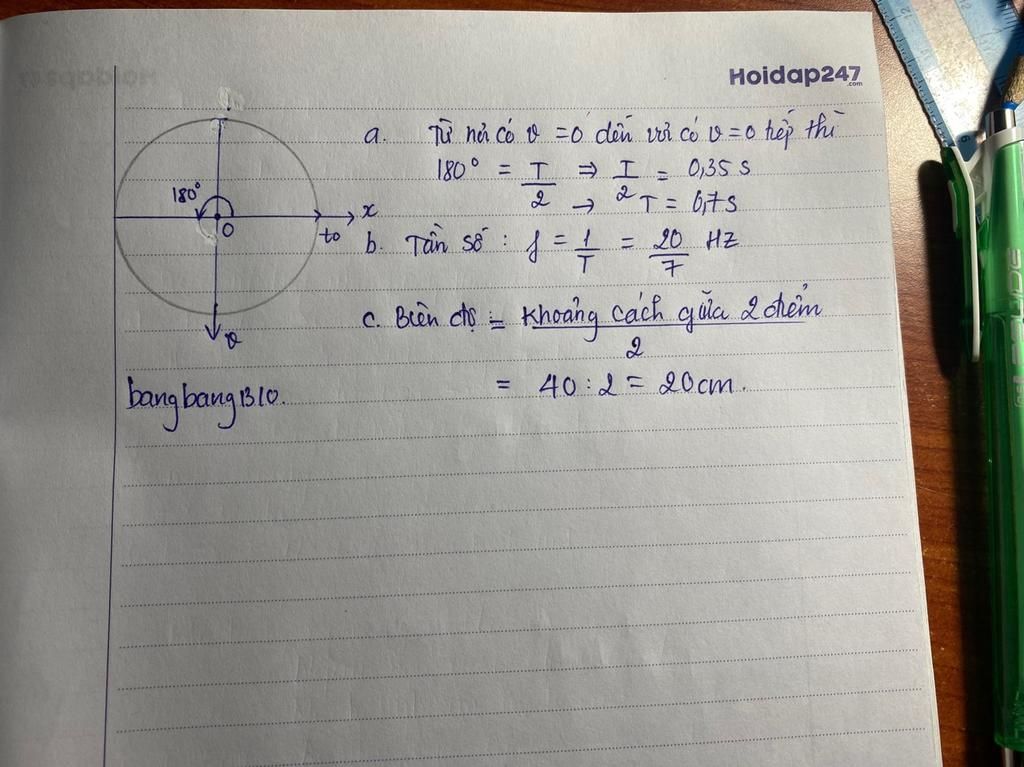 Hoidap247
.com
a. Từ nơi có v = 0 đến vơi có v = 0 tiếp thì
180° = T/2 ⇒ T/2 = 0,35 s
→ T = 0,7 s
180°
O
x
to
v
b. Tần số : f = 1/T = 20/7 HZ
c. Biên độ = Khoảng cách giữa 2 điểm / 2
= 40 : 2 = 20 cm.
bangbang1310.